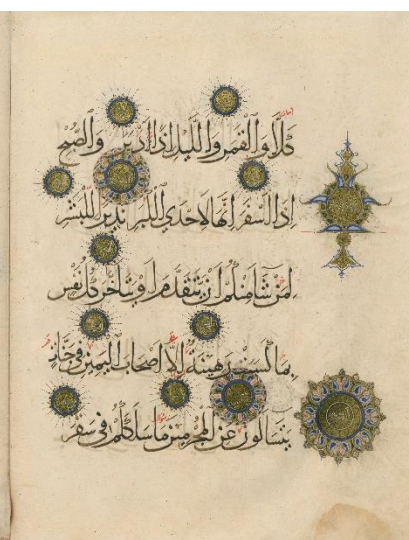 كَلَّا وَالْقَمَرِ وَاللَّيْلِ إِذْ أَدْبَرَ وَالصُّبْحِ
إِذَا أَسْفَرَ إِنَّهَا لَإِحْدَى الْكُبَرِ نَذِيرًا لِلْبَشَرِ
لِمَنْ شَاءَ مِنْكُمْ أَنْ يَتَقَدَّمَ أَوْ يَتَأَخَّرَ كُلُّ نَفْسٍ
بِمَا كَسَبَتْ رَهِينَةٌ إِلَّا أَصْحَابَ الْيَمِينِ فِي جَنَّاتٍ
يَتَسَاءَلُونَ عَنِ الْمُجْرِمِينَ مَا سَلَكَكُمْ فِي سَقَرَ